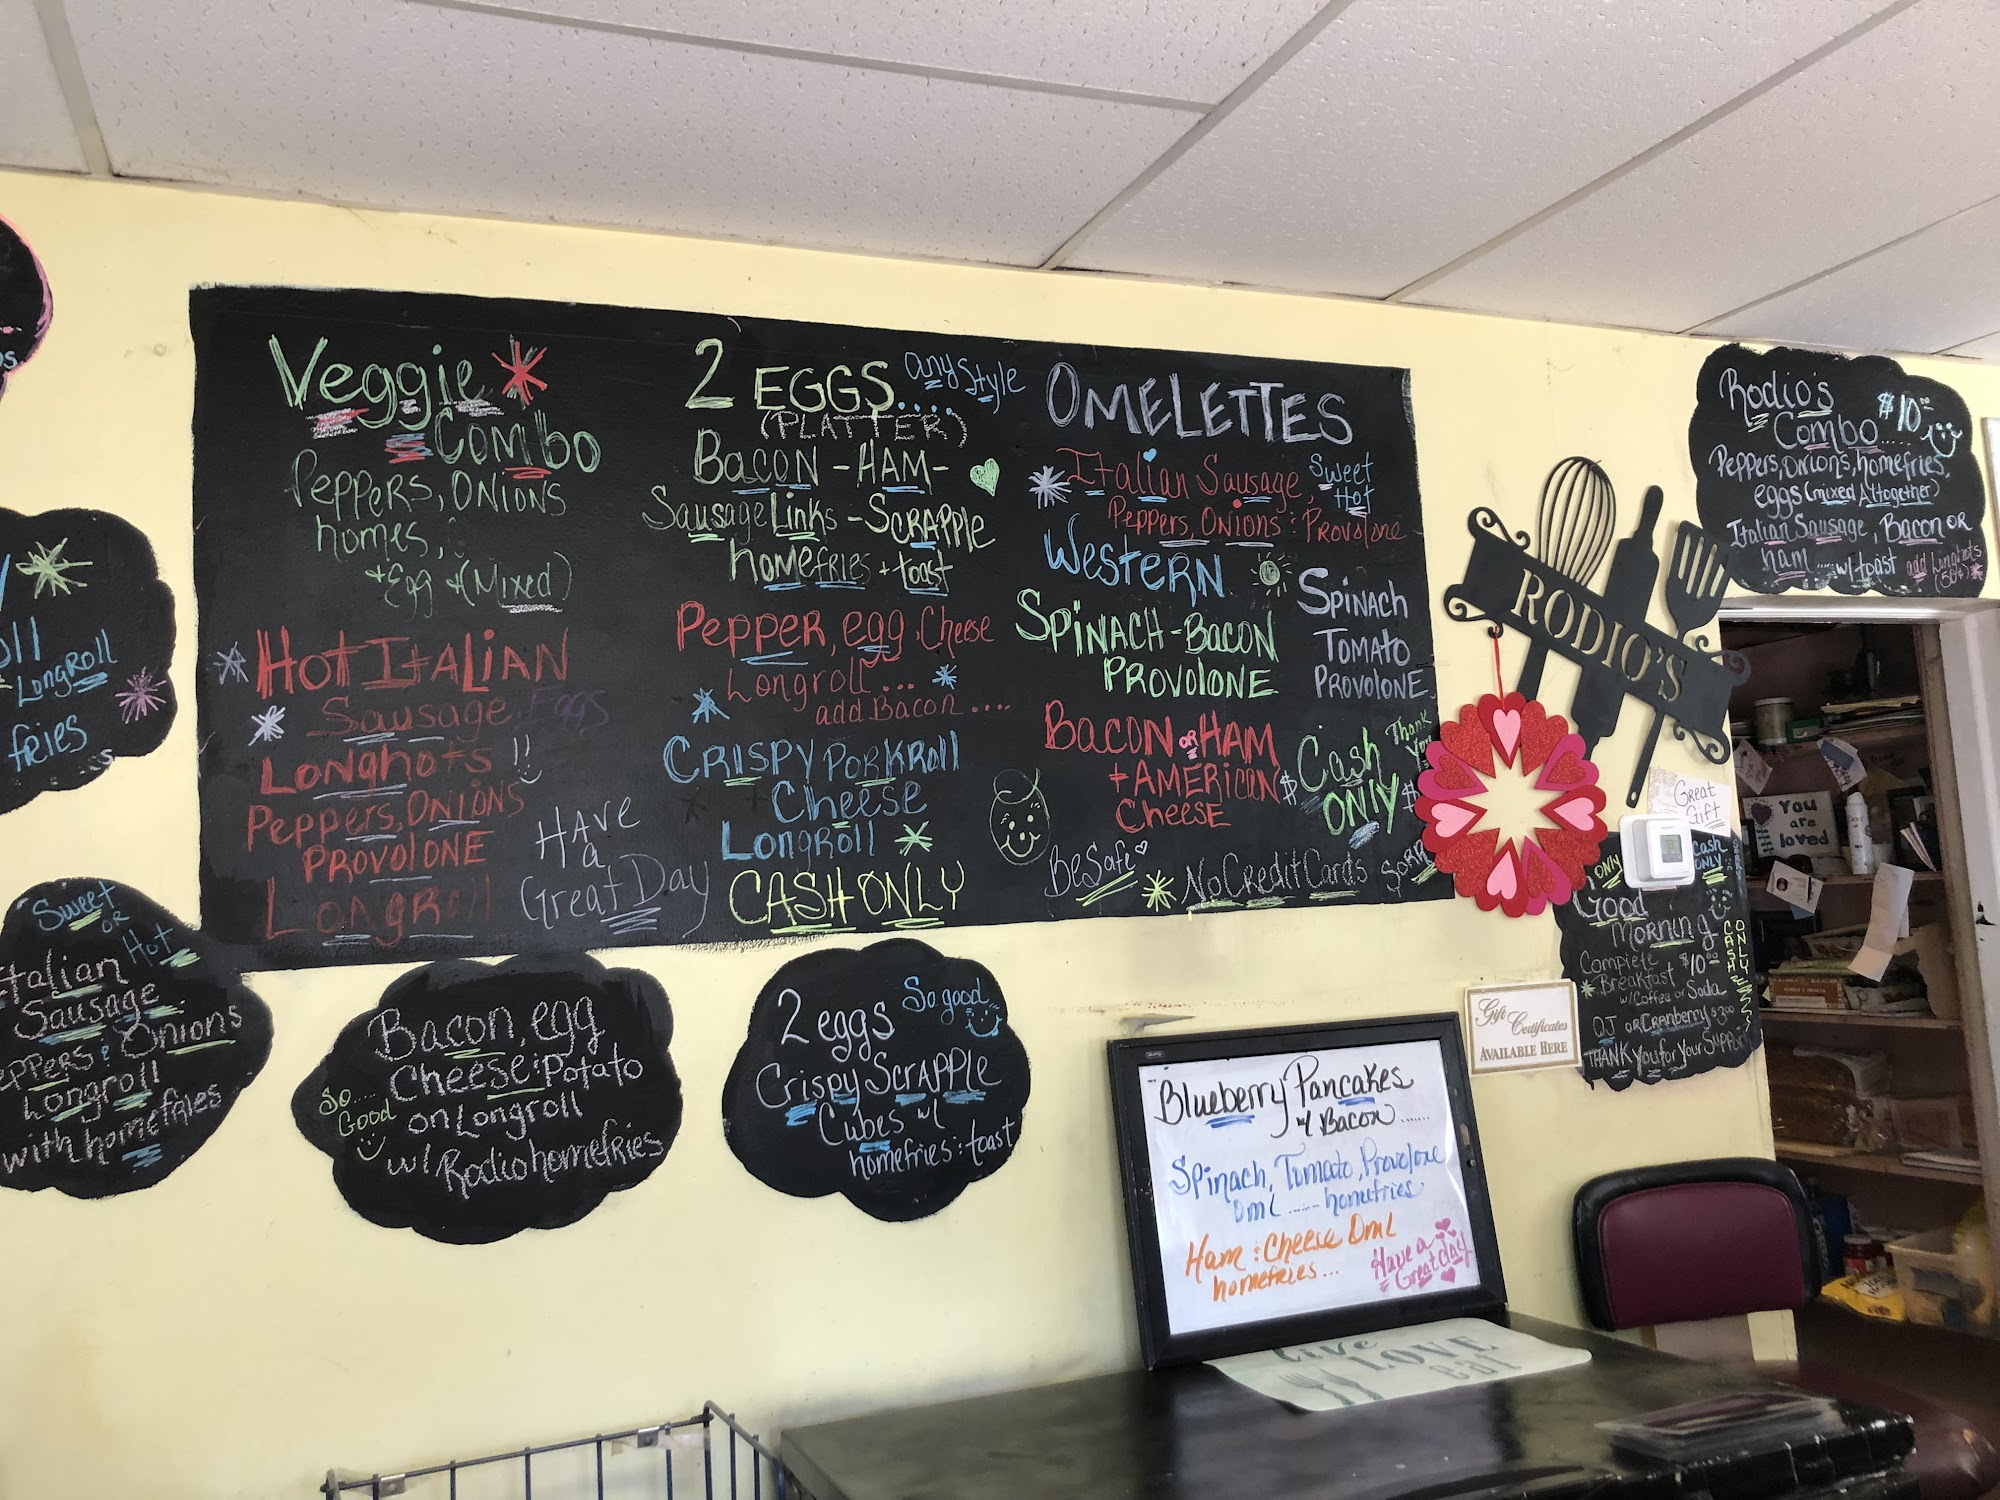 Veggie
Combo
Peppers, Onions
homes,
+ Egg + (Mixed)
Hot Italian
Sausage, Eggs
Longhots !!
Peppers, Onions
Provolone
Longroll
Have
a
Great Day
2 EGGS.... any Style
(PLATTER)
Bacon - Ham -
Sausage Links - Scrapple
homefries + toast
Pepper, egg, Cheese
Longroll ...
add Bacon ....
Crispy Porkroll
Cheese
Longroll
CASH ONLY
OMELETTES
Italian Sausage, Sweet
Hot
Peppers, Onions : Provolone
Western
Spinach - Bacon
Provolone
Spinach
Tomato
Provolone
Bacon or Ham
+ American
Cheese
Thank
You
$ Cash $
Only
Be Safe
No Credit Cards Sorry
Rodio's $10.00
Combo.....
Peppers, Onions, homefries,
eggs (mixed Altogether)
Italian Sausage, Bacon or
ham .... w/ toast add Longhots
(50¢)
RODIO'S
Great
Gift
You
are
loved
Only
Cash
Only
Good
Morning
Complete $10.00
Breakfast
w/ Coffee or Soda
OJ or Cranberry $2.00
Thank you for your Support
CASH
ONLY
Gift
Certificates
AVAILABLE HERE
oll
Longroll
fries
Sweet
or
Hot
Italian
Sausage..
Peppers : Onions
Longroll
with homefries
Bacon, egg
Cheese : Potato
on Longroll
w/ Rodio homefries
So.....
Good
2 eggs So good
Crispy Scrapple
Cubes w/
homefries : toast
Blueberry Pancakes
w/ Bacon ......
Spinach, Tomato, Provolone
Oml ..... homefries
Ham : Cheese Oml
homefries ...
Have a
Great day
live
LOVE
eat